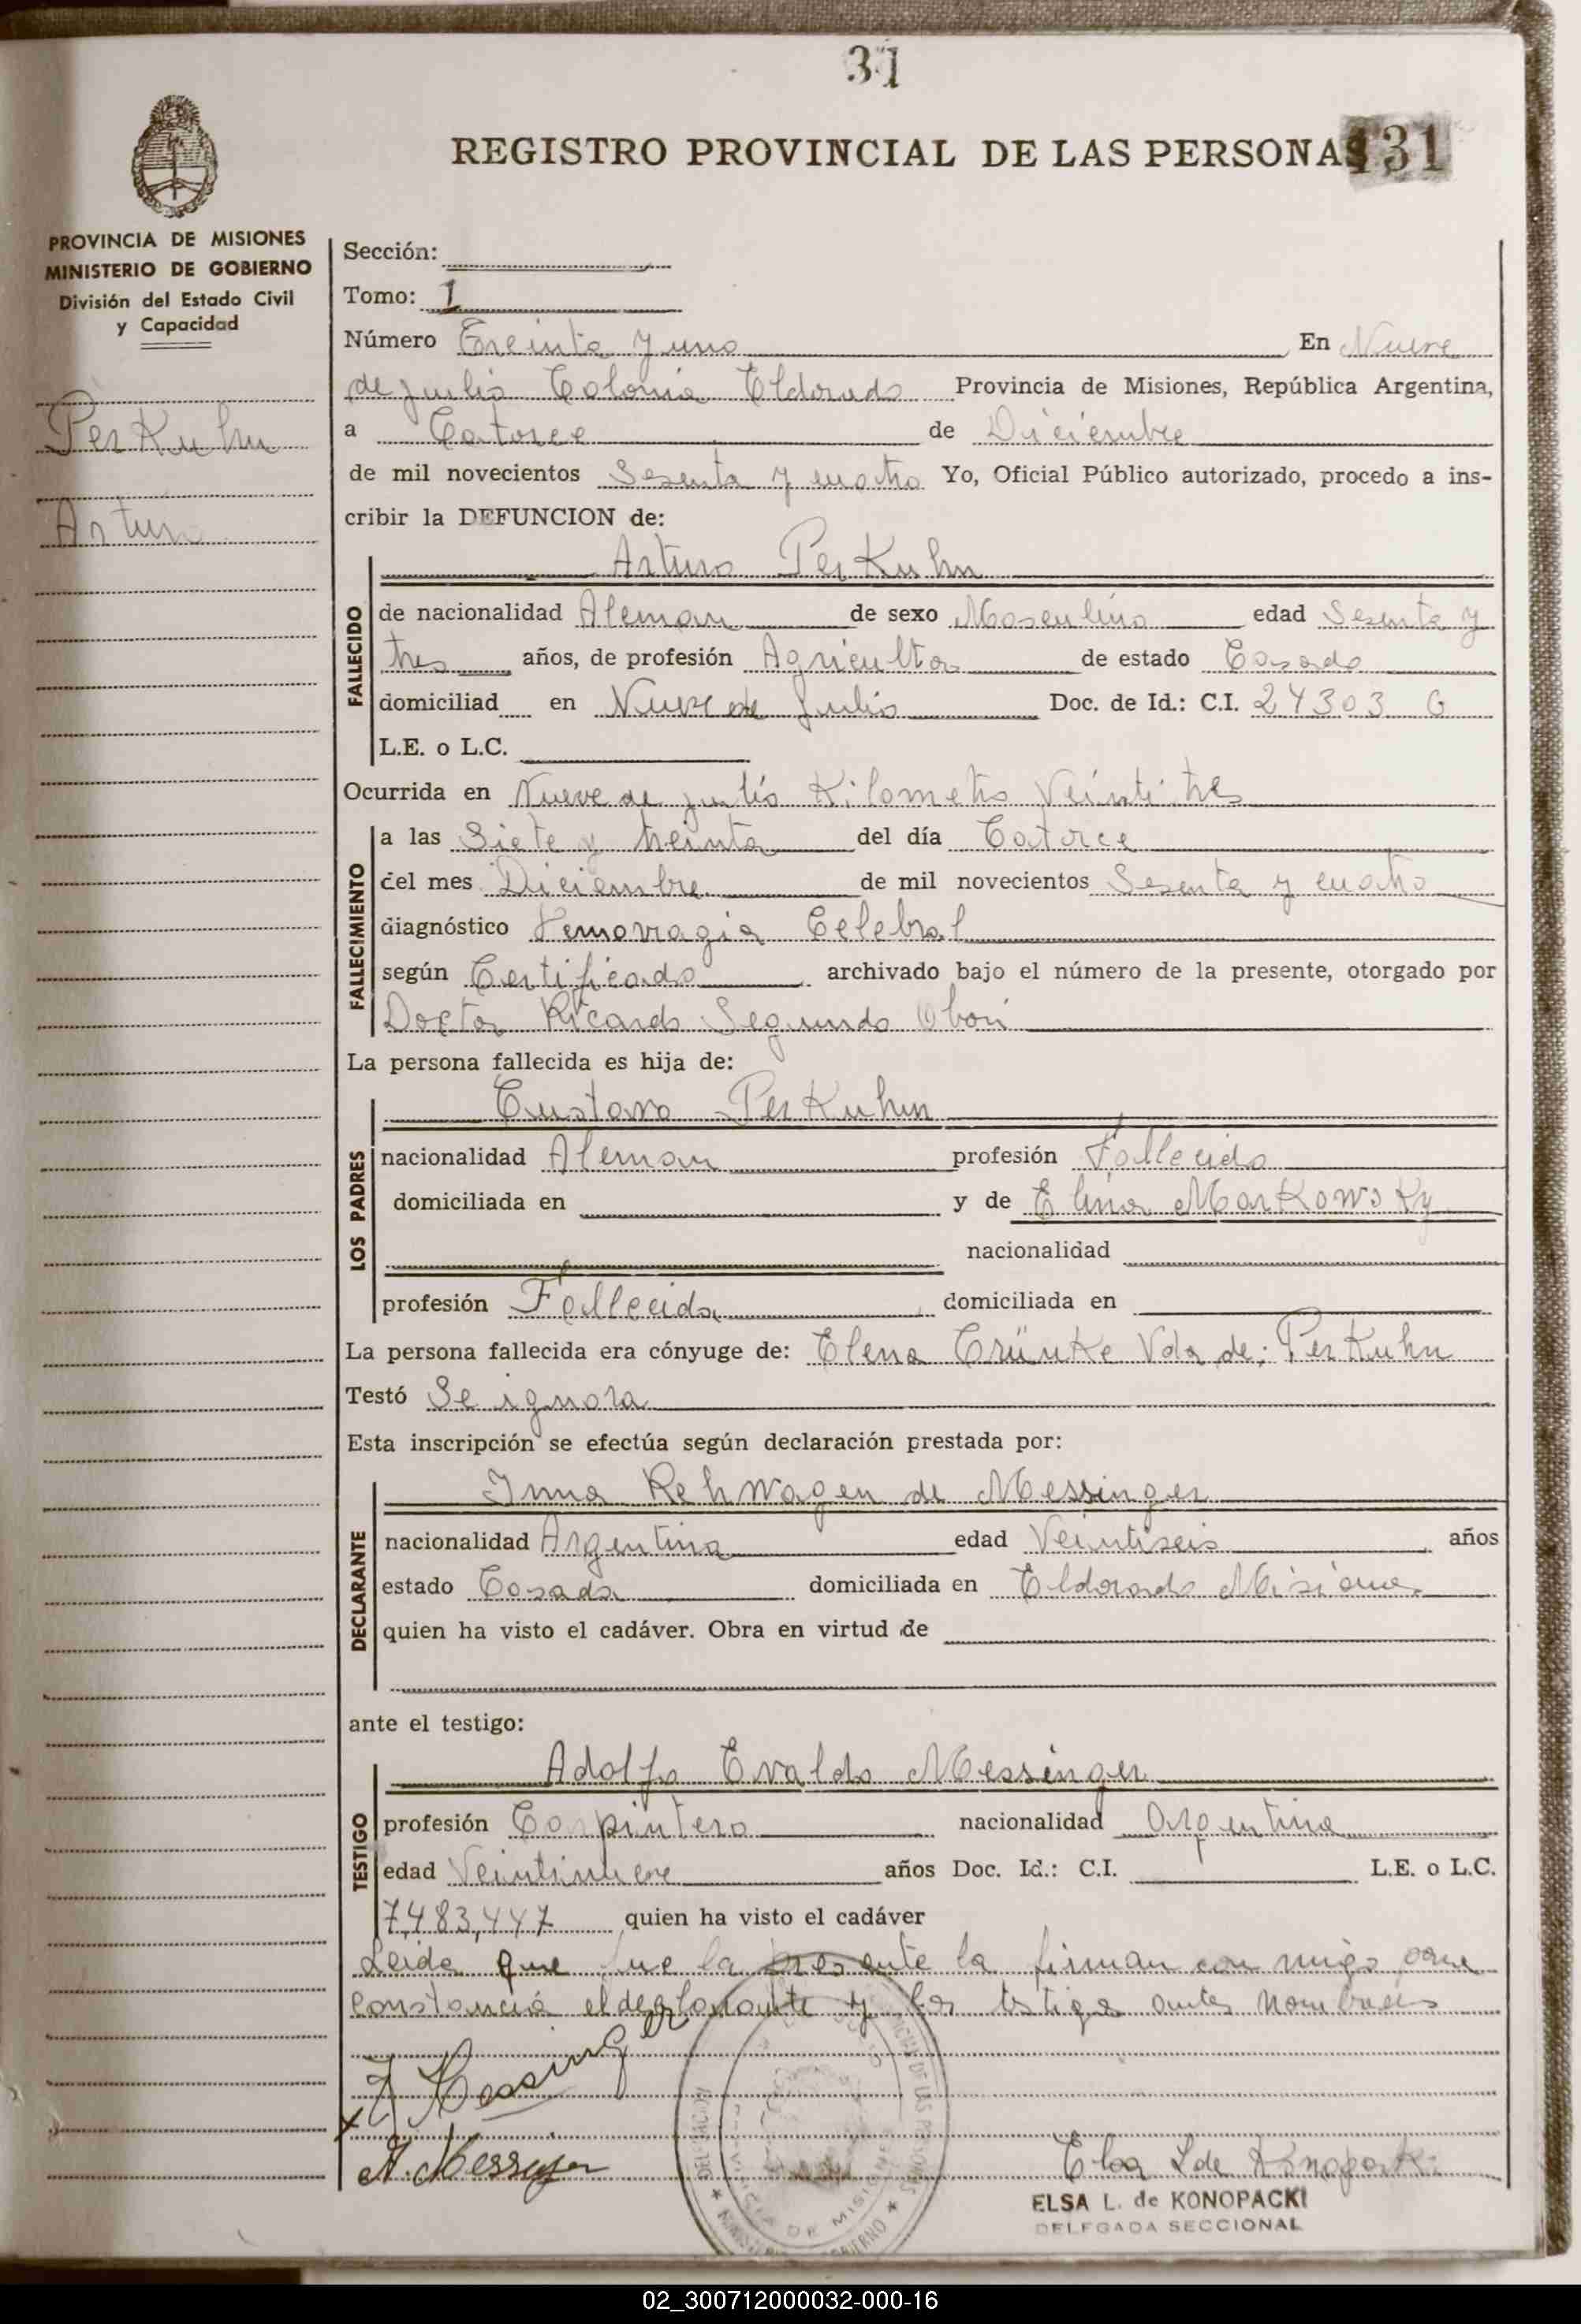 31
REGISTRO PROVINCIAL DE LAS PERSONAS 131
PROVINCIA DE MISIONES
MINISTERIO DE GOBIERNO
División del Estado Civil
y Capacidad
PerKuhn
Arturo
Sección:
Tomo: 1
Número Treinta y uno En Nueve
de Julio Colonia Eldorado Provincia de Misiones, República Argentina,
a Catorce de Diciembre
de mil novecientos Sesenta y cuatro Yo, Oficial Público autorizado, procedo a ins-
cribir la DEFUNCION de:
Arturo PerKuhn
FALLECIDO
de nacionalidad Aleman de sexo Masculino edad Sesenta y
tres años, de profesión Agricultor de estado Casado
domiciliad en Nueve de Julio Doc. de Id.: C.I. 24303 G
L.E. o L.C.
Ocurrida en Nueve de Julio Kilometro Veintitres
FALLECIMIENTO
a las Siete y treinta del día Catorce
del mes Diciembre de mil novecientos Sesenta y cuatro
diagnóstico Hemorragia Celebral
según Certificado archivado bajo el número de la presente, otorgado por
Doctor Ricardo Segundo Obon
La persona fallecida es hija de:
Gustavo PerKuhn
LOS PADRES
nacionalidad Aleman profesión Fallecido
domiciliada en y de Elina MarKowsKy
nacionalidad
profesión Fallecida domiciliada en
La persona fallecida era cónyuge de: Elena Grünke Vda de: PerKuhn
Testó Se ignora
Esta inscripción se efectúa según declaración prestada por:
Irma Rehwagen de Messinger
DECLARANTE
nacionalidad Argentina edad Veintiseis años
estado Casada domiciliada en Eldorado Misiones
quien ha visto el cadáver. Obra en virtud de
ante el testigo:
Adolfo Evaldo Messinger
TESTIGO
profesión Carpintero nacionalidad Argentina
edad Veintinueve años Doc. Id.: C.I. L.E. o L.C.
7,483,447 quien ha visto el cadáver
Leida que fue la presente la firman con migo para
constancia el declarante y los testigo antes nombrados
I Messinger
A. Messinger
Elsa L de Konopacki
ELSA L. de KONOPACKI
DELEGADA SECCIONAL
PROVINCIA DE MISIONES
02_300712000032-000-16